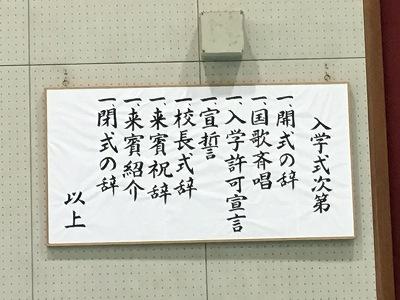 入学式次第
一、開式の辞
一、国歌斉唱
一、入学許可宣言
一、宣誓
一、校長式辞
一、来賓祝辞
一、来賓紹介
一、閉式の辞
以上